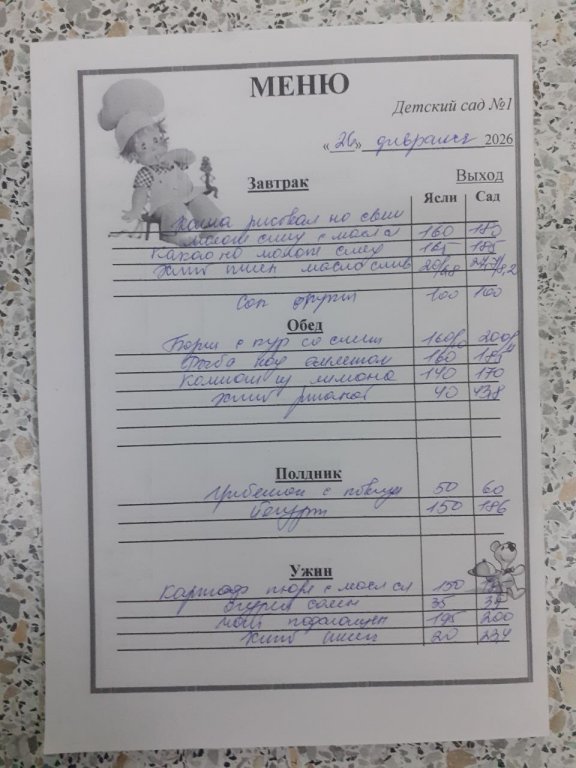 МЕНЮ
Детский сад №1
«26» февраля 2026
Завтрак Выход
Ясли Сад
Каша рисовая на свеж
молоке слив с масл сл 160 180
Какао на молоке 165 185
Хлеб пшен масло слив
Сок фрукт 100 100
Обед
Борщ с кур со смет
Рыба под омлетом 160
Компот из лимона 140 170
Хлеб ржаной 40 43,8
Полдник
Гребешок с повидл 50 60
Йогурт 150 186
Ужин
Картоф пюре с масл сл 150
Огурец солен 35
Чай 195 200
Хлеб пшен 20 23,4